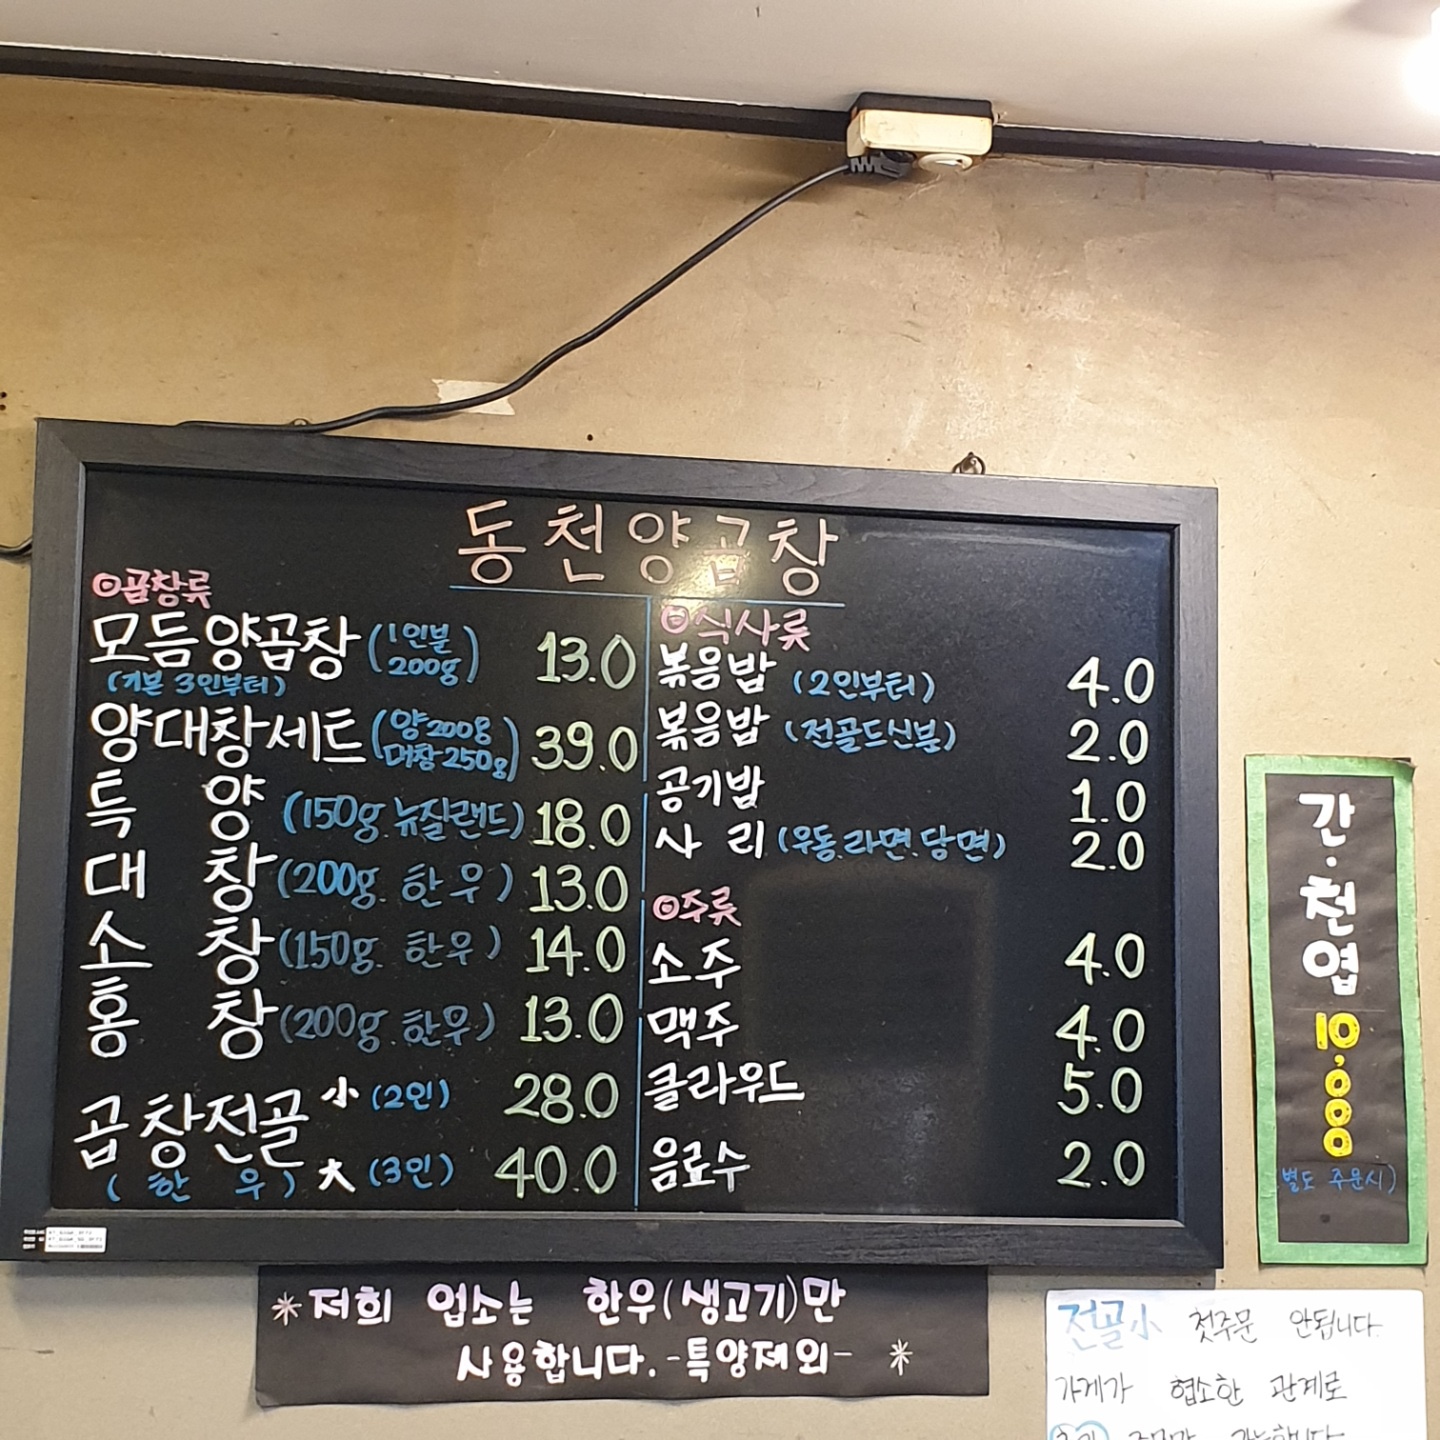 동천양곱창
◎곱창류
모듬양곱창 (1인분 200g) 13.0
(기본 3인부터)
양대창세트 (양200g 대창250g) 39.0
특 양 (150g 뉴질랜드) 18.0
대 창 (200g. 한우) 13.0
소 창 (150g. 한우) 14.0
홍 창 (200g. 한우) 13.0
곱창전골 小 (2인) 28.0
(한 우) 大 (3인) 40.0
◎식사류
볶음밥 (2인부터) 4.0
볶음밥 (전골드신분) 2.0
공기밥 1.0
사 리 (우동.라면.당면) 2.0
◎주류
소주 4.0
맥주 4.0
클라우드 5.0
음료수 2.0
간.천엽
10,000
별도 주문시)
*저희 업소는 한우(생고기)만
사용합니다.-특양제외- *
전골小 첫주문 안됩니다.
가게가 협소한 관계로